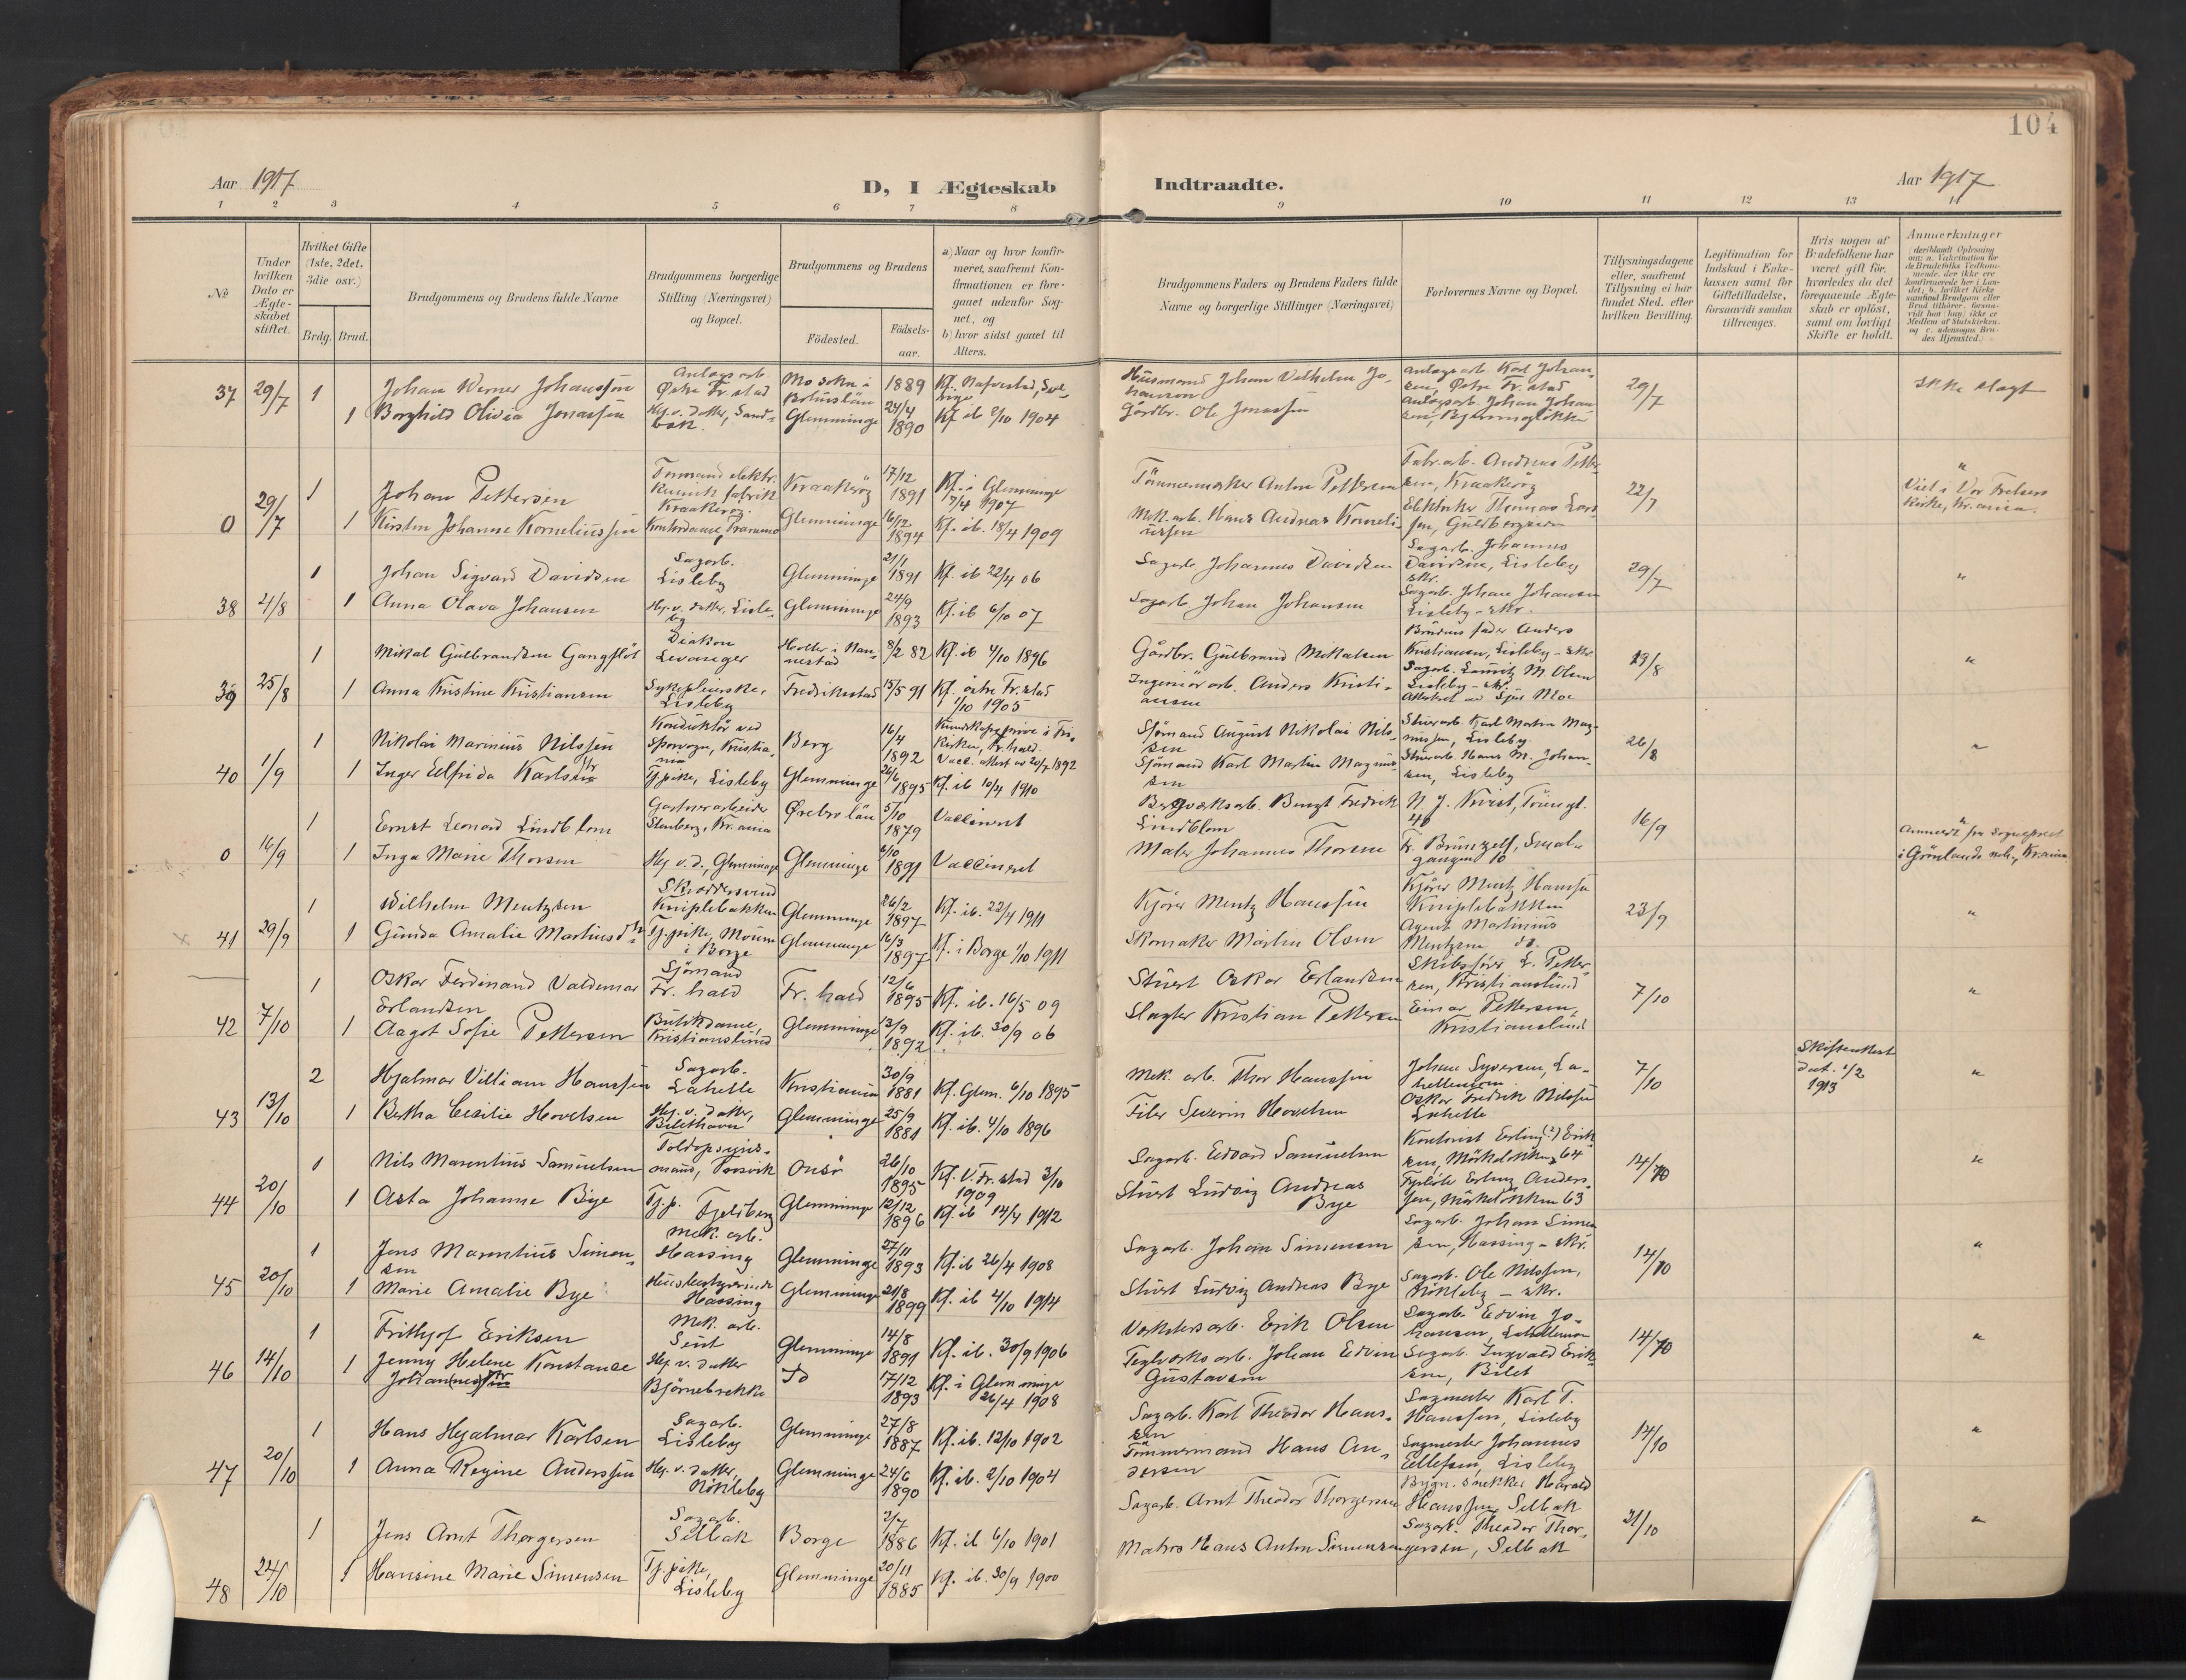 104
Aar 1917
D, I Ægteskab
Indtraadte.
Aar 1917
1 2 3 4 5 6 7 8 9 10 11 12 13 14
№
Under hvilken Dato er Ægteskabet stiftet.
Hvilket Gifte (1ste, 2det, 3die osv.)
Brdg. Brud.
Brudgommens og Brudens fulde Navne
Brudgommens borgerlige Stilling (Næringsvei) og Bopæl.
Brudgommens og Brudens
Födested.
Födselsaar.
a) Naar og hvor konfirmeret, saafremt Konfirmationen er foregaaet udenfor Sognet, og
b) hvor sidst gaaet til Alters.
Brudgommens Faders og Brudens Faders fulde Navne og borgerlige Stillinger (Næringsvei)
Forlovernes Navne og Bopæl.
Tillysningsdagene eller, saafremt Tillysning ei har fundet Sted, efter hvilken Bevilling.
Legitimation for Indskud i Enkekassen samt for Giftetilladelse, forsaavidt saadan tiltrænges.
Hvis nogen af Brudefolkene har været gift för, hvorledes da det foregaaende Ægteskab er oplöst, samt om lovligt Skifte er holdt.
Anmerkninger
37 29/7 1 Johan Werner Johansson Anlægsarb Østre Fr.stad Mo sokn i Bohuslän 1889 Husmand Johan Vilhelm Johansson Anlægsarb Karl Johansen, Østre Fr.stad 29/7 Ikke slægt
1 Borghild Olivia Jonassen Hj.v. datter, Sandbæk Glemminge 24/4 1890 Kf ib 2/10 1904 Gårdbr. Ole Jonassen Anlægsarb. Johan Johansen,
0 29/7 1 Johan Pettersen Formand elektr. kemisk fabrik Kraakerøy Kraakerøy 17/12 1891 Kf. i Glemminge 7/4 1907 Tömmermester Anton Pettersen Fabr.arb. Andreas Pettersen, Kraakerøy 22/7 " Viet i Vor Frelsers kirke, Kr.ania.
1 Kirsten Johanne Korneliussen Kontordame, Glemminge 16/12 1894 Kf. ib. 18/4 1909 Mek. arb. Hans Andreas Korneliussen Elektriker Thomas Larssen,
38 4/8 1 Johan Sigvard Davidsen Sagarb. Lisleby Glemminge 21/1 1891 Kf. ib 22/4 06 Sagarb. Johannes Davidsen Sagarb. Johannes Davidsen, Lisleby skr. 29/7 "
1 Anna Olava Johansen Hj. v. datter, Lisleby Glemminge 24/9 1893 Kf. ib 6/10 07 Sagarb Johan Johansen Sagarb. Johan Johansen Lisleby - skr.
39 25/8 1 Mikal Gulbrandsen Gangflöt Diakon Levanger 8/2 82 Kf. ib 4/10 1896 Gårdbr. Gulbrand Mikalsen Brudens fader Anders Kristiansen, Lisleby - skr 19/8 "
1 Anna Kristine Kristiansen Sykepleierske, Lisleby Fredrikstad 15/5 91 Kf. östre Fr.stad 1/10 1905 Ingeniörarb. Anders Kristiansen Sagarb. Lauritz M. Olsen Lisleby - skr.
40 1/9 1 Nikolai Marinius Nilssen Konduktör ved Sporvogn, Kristiania Berg 16/4 1892 Sjömand August Nikolai Nilssen Karl Martin Magnussen, Lisleby 26/8 "
1 Inger Elfrida Karlsen Tj.pike, Lisleby Glemminge 26/6 1895 Kf. ib 10/4 1910 Sjömand Karl Martin Magnussen Hans M. Johansen, Lisleby
0 16/9 1 Ernst Leonard Lindblom Gartnerarbeider Stenberg, Kr.ania Ørebro län 5/10 1879 Vaccineret Bergværksarb. Bengt Fredrik Lindblom N. J. Kvist, 16/9 " Anmeldt fra Sognepræst i Grönlands mh., Kr.ania
1 Inga Marie Thorsen Hj. v. d., Glemminge Glemminge 6/10 1891 Vaccineret Maler Johannes Thorsen Smalgangen 10
41 29/9 1 Wilhelm Mentzsen Skræddersvend Kniplebakken Glemminge 26/2 1897 Kf. ib. 22/4 1911 Kjører Mentz Hanssen Kjører Mentz Hanssen Kniplebakken 23/9 "
1 Gunda Amalie Martinsdtr Tj.pike, Moum i Borge Glemminge 16/3 1897 Kf. i Borge 1/10 1911 Skomaker Martin Olsen Agent Martinius Mentzsen do.
42 7/10 1 Oskar Ferdinand Valdemar Erlandsen Sjömand Fr. hald Fr. hald 12/6 1895 Kf. ib. 16/5 09 Stuert Oskar Erlandsen Skibsförer L. Pettersen, Kristianslund 7/10 "
1 Aagot Sofie Pettersen Butikdame, Kristianslund Glemminge 13/9 1892 Kf. ib. 30/9 06 Slagter Kristian Pettersen Einar Pettersen, Kristianslund
43 13/10 2 Hjalmar Villiam Hanssen Sagarb. Lahelle Kristiania 30/9 1881 Kf. Glem. 6/10 1895 Mek. arb. Thor Hanssen Johan Syversen, Lahellemoen 7/10 Skifteattest dat. 1/2 1913 "
1 Bertha Cecilie Hovelsen Hj. v. datter, Glemminge 25/9 1881 Kf. ib. 4/10 1896 Filer Severin Hovelsen Oskar Fredrik Nilssen Lahelle
44 20/10 1 Nils Marentius Samuelsen Toldopsynsmand, Onsö 26/10 1895 Kf. V. Fr.stad 3/10 1909 Sagarb. Edvard Samuelsen Kontorist Erling (?) Eriksen, Mörkelokken 64 14/10 "
1 Asta Johanne Bye Tj.p. Fjeldberg Glemminge 12/12 1896 Kf. ib 14/4 1912 Stuert Ludvig Andreas Bye Erling Anderssen, Mörkelokken 63
45 20/10 1 Jens Marentius Simensen Mek. arb. Hassing Glemminge 27/11 1893 Kf. ib 26/4 1908 Sagarb. Johan Simensen Sagarb. Johan Simensen, Hassing - skr. 14/10 "
1 Marie Amalie Bye Husbestyrerinde Hassing Glemminge 21/8 1899 Kf. ib 4/10 1914 Stuert Ludvig Andreas Bye Sagarb. Ole Nilssen, Nökleby - skr.
46 14/10 1 Frithjof Eriksen Mek. arb. Seut Glemminge 14/8 1891 Kf. ib. 30/9 1906 Verkstedsarb. Erik Olsen Sagarb. Edvin Johansen, Lahellemoen 14/10 "
1 Jenny Helene Konstance Hj. v. datter Björnebrekke Do 17/12 1893 Kf. i Glemminge 26/4 1908 Teglverksarb. Johan Edvin Gustavsen Sagarb. Ingvald Eriksen, Bilet
47 20/10 1 Hans Hjalmar Karlsen Sagarb. Lisleby Glemminge 27/8 1887 Kf. ib. 12/10 1902 Sagarb. Karl Theodor Hanssen Sagmester Karl T. Hanssen, Lisleby 14/10 "
1 Anna Regine Anderssen Hj. v. datter, Nökleby Glemminge 24/6 1890 Kf. ib. 2/10 1904 Tömmermand Hans Andersen Sagmester Johannes Ellefsen, Lisleby
48 24/10 1 Jens Arnt Thorgersen Sagarb. Selbak Borge 2/7 1886 Kf. ib 6/10 1901 Sagarb. Arnt Theodor Thorgersen Bygn. snekker Harald Hanssen, Selbak 21/10 "
1 Hansine Marie Simensen Tj. pike, Lisleby Glemminge 20/11 1885 Kf. ib. 30/9 1900 Matros Hans Anton Simensen Sagarb. Theodor Thorgersen, Selbak